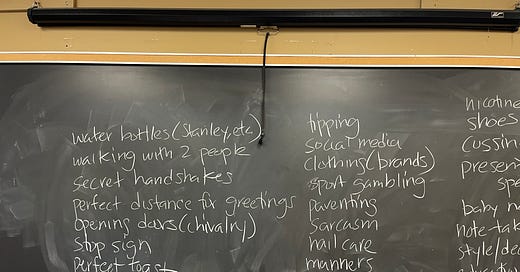 water bottles (Stanley, etc)
walking with 2 people
secret handshakes
perfect distance for greetings
opening doors (chivalry)
stop sign
perfect toast
tipping
social media
clothing (brands)
sport gambling
parenting
sarcasm
nail care
manners
nicotine
shoes
cussin
presen
spe
baby n
note-tak
style/de